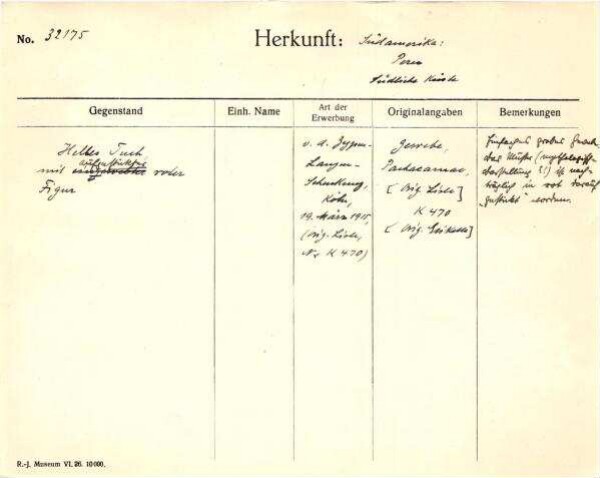 No. 32175
Herkunft: Südamerika:
Peru
Südliche Küste
Gegenstand
Einh. Name
Art der
Erwerbung
Originalangaben
Bemerkungen
Helles Tuch
aufgestickter
mit eingewebter roter
Figur
v. d. Zypen-
Langen-
Schenkung,
Köln,
19. März 1915,
(Orig. Liste,
Nr. K 470)
Gewebe,
Pachacamac,
[Orig. Liste]
K 470
[Orig. Etikette]
Einfaches grobes Gewebe.
Das Muster (mytholog.
Darstellung (!) ist nach-
träglich in rot darauf
"gestickt" worden.
R.-J. Museum VI. 26. 10000.